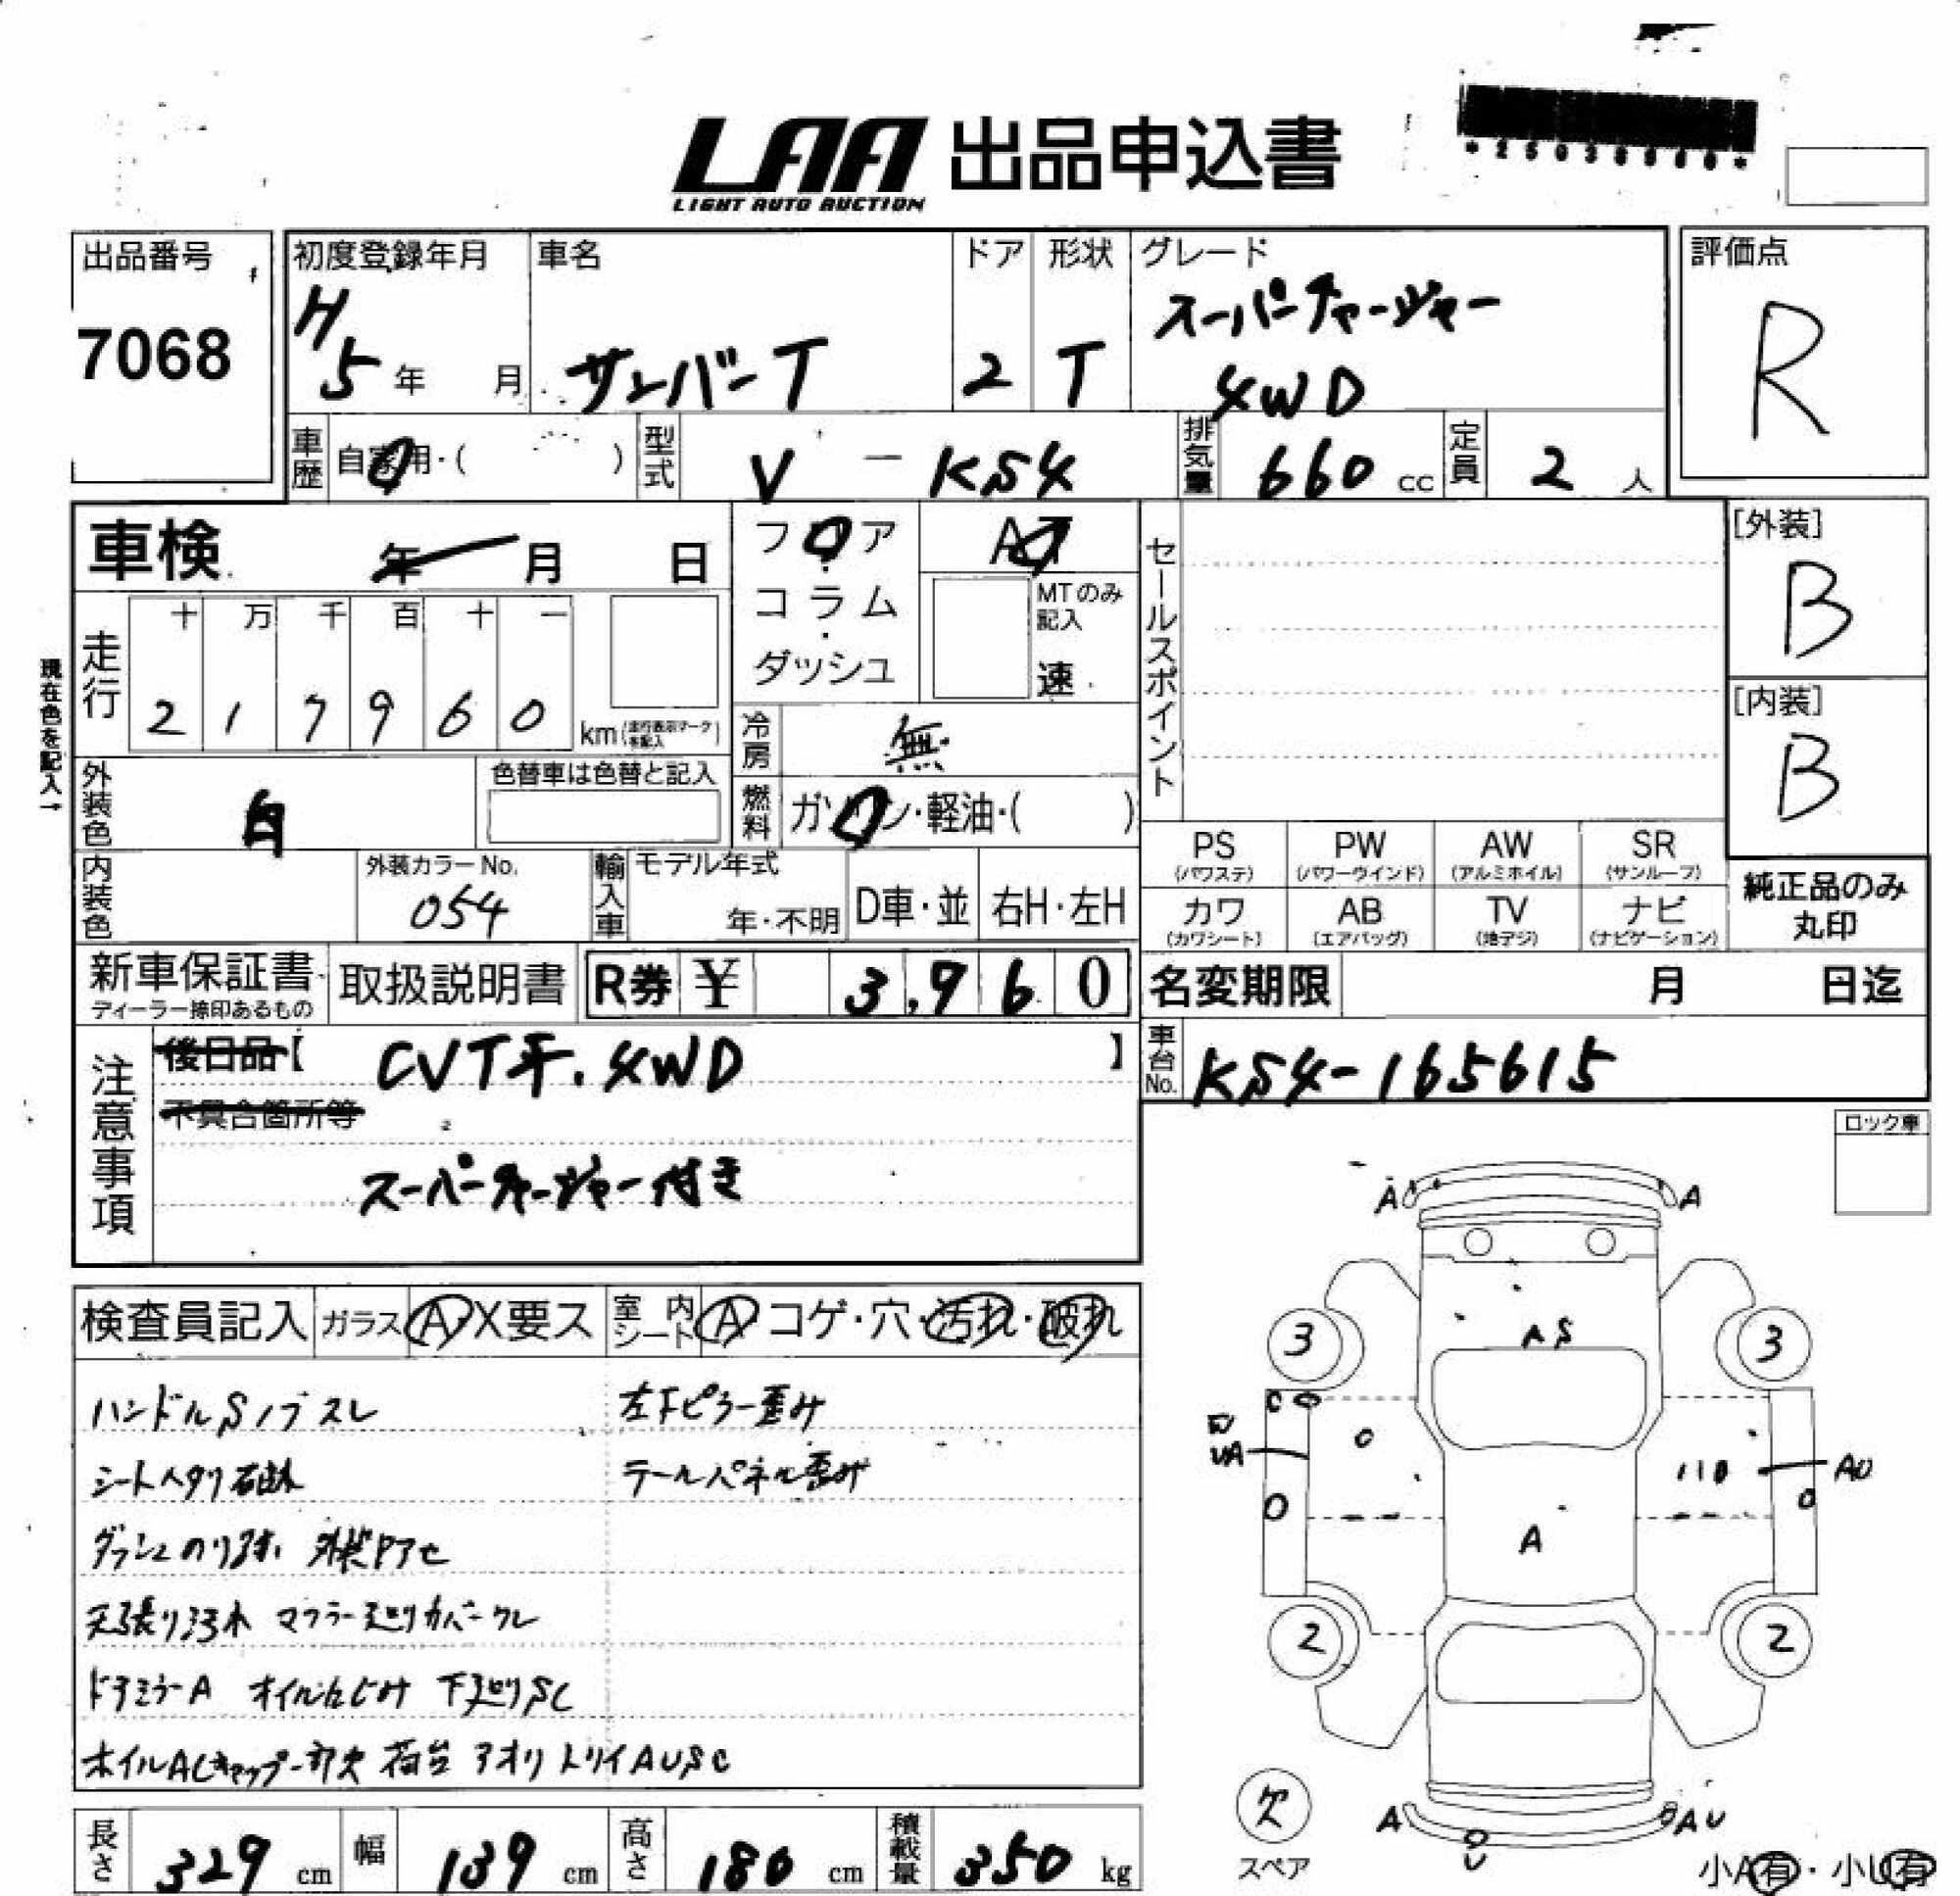 LAA 出品申込書
LIGHT AUTO AUCTION
出品番号
7068
初度登録年月
H5年 月
車名
サンバーT
ドア
2
形状
T
グレード
スーパーチャージャー
4WD
評価点
R
車歴
自家用・( )
型式
V - KS4
排気量
660 cc
定員
2 人
車検 年 月 日
フロア
・
コラム
・
ダッシュ
AT
MTのみ記入
速
セールスポイント
[外装]
B
[内装]
B
現在色を記入→
走行
十 万 千 百 十 一
2 1 7 9 6 0 km(走行表示マークを記入)
冷房
無
外装色
白
色替車は色替と記入
燃料
ガソリン・軽油・( )
内装色
外装カラーNo.
054
輸入車
モデル年式
年・不明
D車・並
右H・左H
PS (パワステ)
PW (パワーウインド)
AW (アルミホイル)
SR (サンルーフ)
カワ (カワシート)
AB (エアバッグ)
TV (地デジ)
ナビ (ナビゲーション)
純正品のみ
丸印
新車保証書
ディーラー捺印あるもの
取扱説明書
R券 ¥ 3,960
名変期限 月 日迄
注意事項
後日品【 CVT車.4WD 】
不具合箇所等
スーパーチャージャー付き
車台No.
KS4-165615
ロック車
検査員記入
ガラス A X要ス
室内シート A コゲ・穴・汚れ・破れ
ハンドルSノブスレ
左下ピラー歪み
シートヘタリ破れ
テールパネル歪み
外装Pアセ
天張り汚れ マフラー廻りカバークレ
ドアミラーA オイルにじみ 下廻りSC
ホイルACキャップ一部欠 荷台アオリトリイAUSC
長さ 329 cm
幅 139 cm
高さ 180 cm
積載量 350 kg
A A
3 3
A S
C
UA
AU
A
2 2
欠
スペア
A
U
AU
小A有・小U有